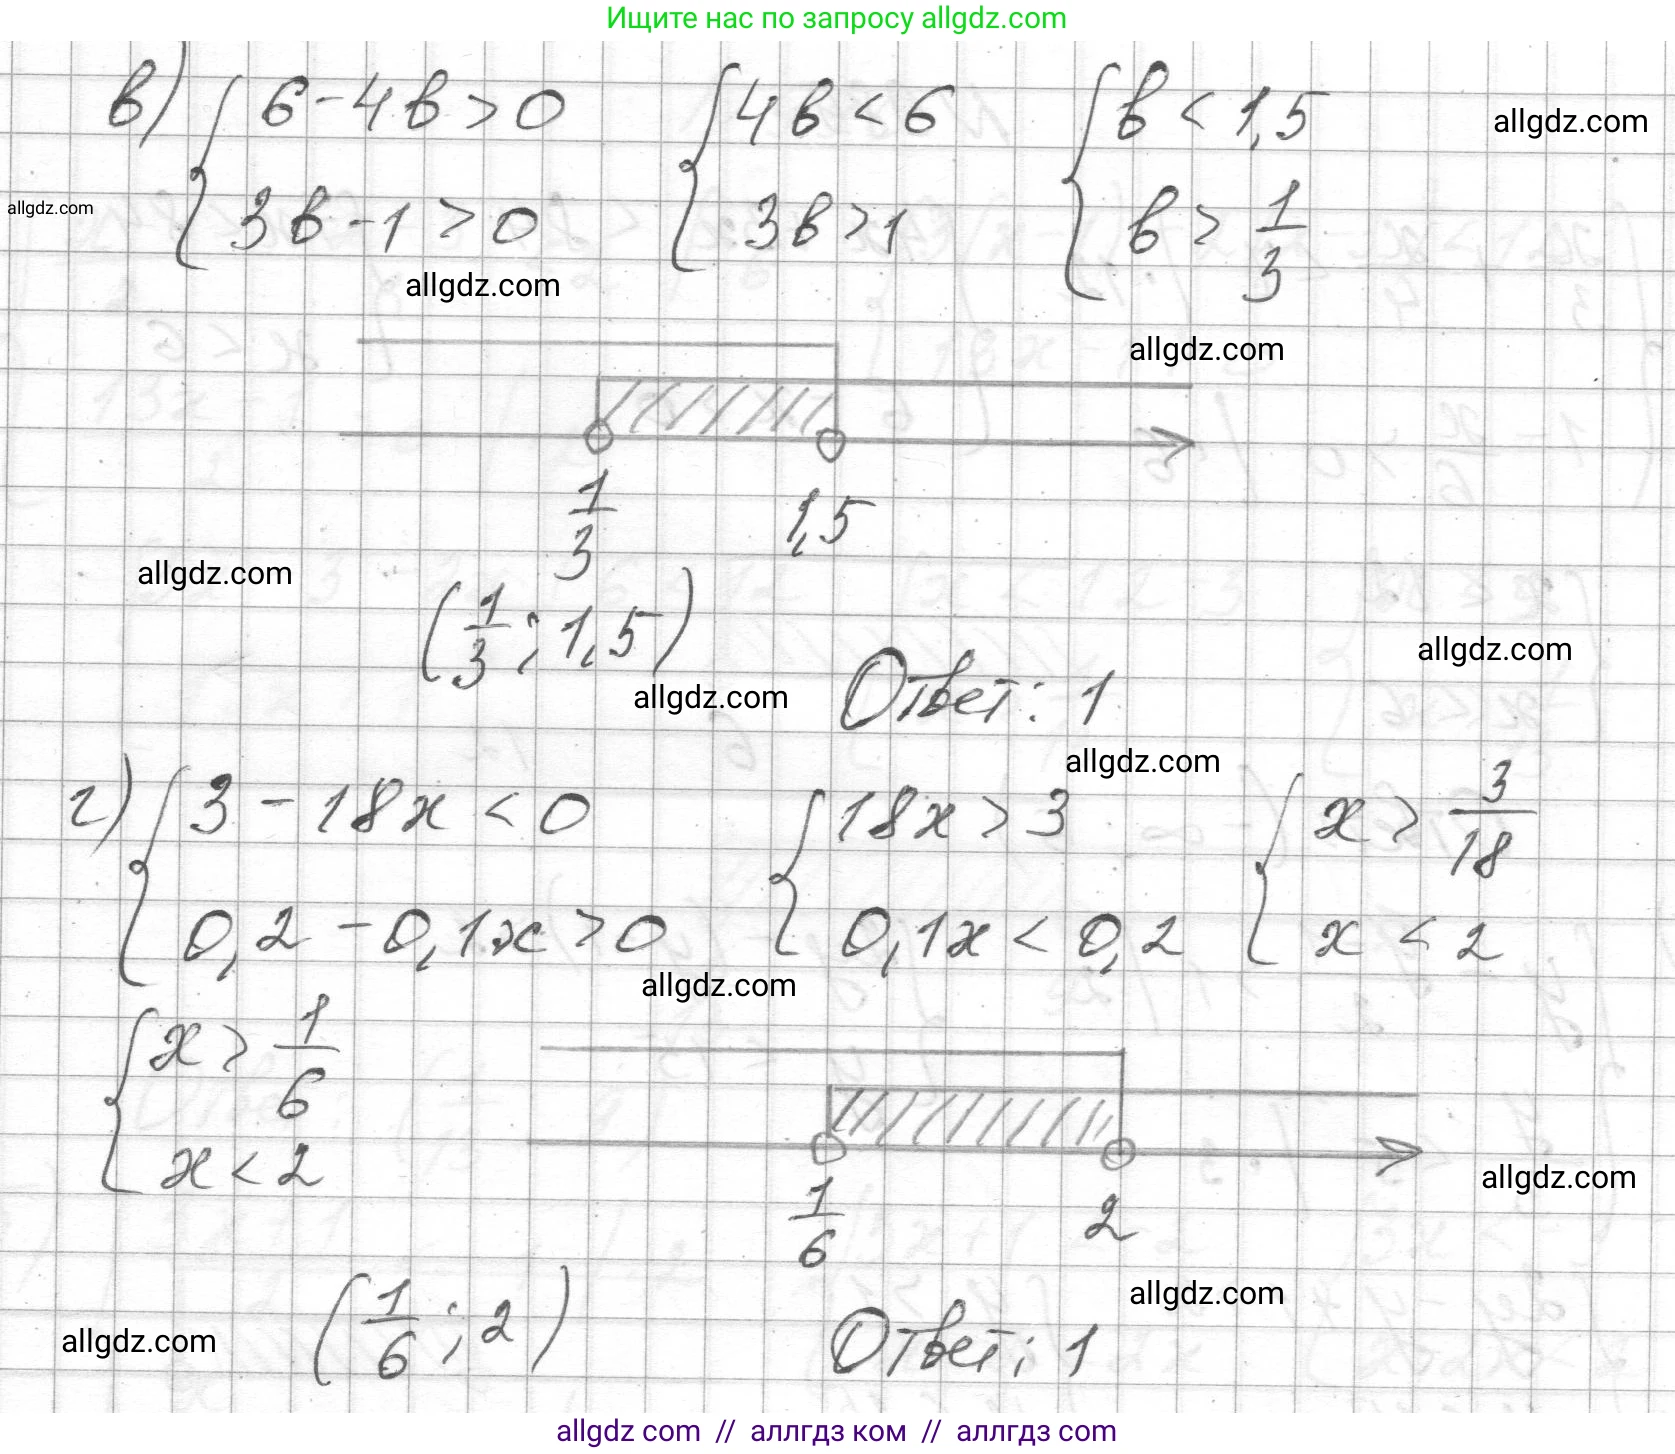 Ищите нас по запросу allgdz.com
в) { 6 - 4в > 0 { 4в < 6 { в < 1,5
allgdz.com
3в - 1 > 0 3в > 1 в > 1/3
allgdz.com
allgdz.com
allgdz.com
1/3 1,5
allgdz.com
(1/3; 1,5)
allgdz.com
allgdz.com
Ответ: 1
allgdz.com
г) { 3 - 18x < 0 { 18x > 3 { x > 3/18
0,2 - 0,1x > 0 0,1x < 0,2 x < 2
allgdz.com
{ x > 1/6
x < 2
allgdz.com
1/6 2
allgdz.com
allgdz.com
(1/6; 2) Ответ: 1
allgdz.com // аллгдз ком // аллгдз com